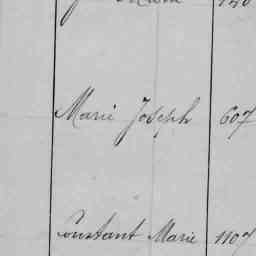 Marie Joseph 607
Constant Marie 1107